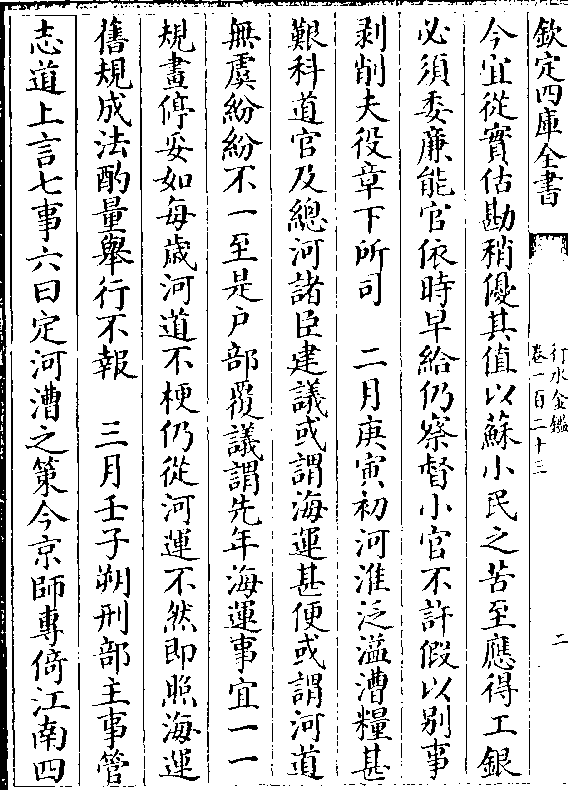 欽定四庫全書
行水金鑑
卷一百二十三
二
今宜從實估勘稍優其值以蘇小民之苦至應得工銀
必須委廉能官依時早給仍察督小官不許假以别事
剥削夫役章下所司　二月庚寅初河淮泛溢漕糧甚
艱科道官及總河諸臣建議或謂海運甚便或謂河道
無虞紛紛不一至是户部覆議謂先年海運事宜一一
規畫停妥如每歲河道不梗仍從河運不然即照海運
舊規成法酌量舉行不報　三月壬子朔刑部主事管
志道上言七事六曰定河漕之策今京師專倚江南四